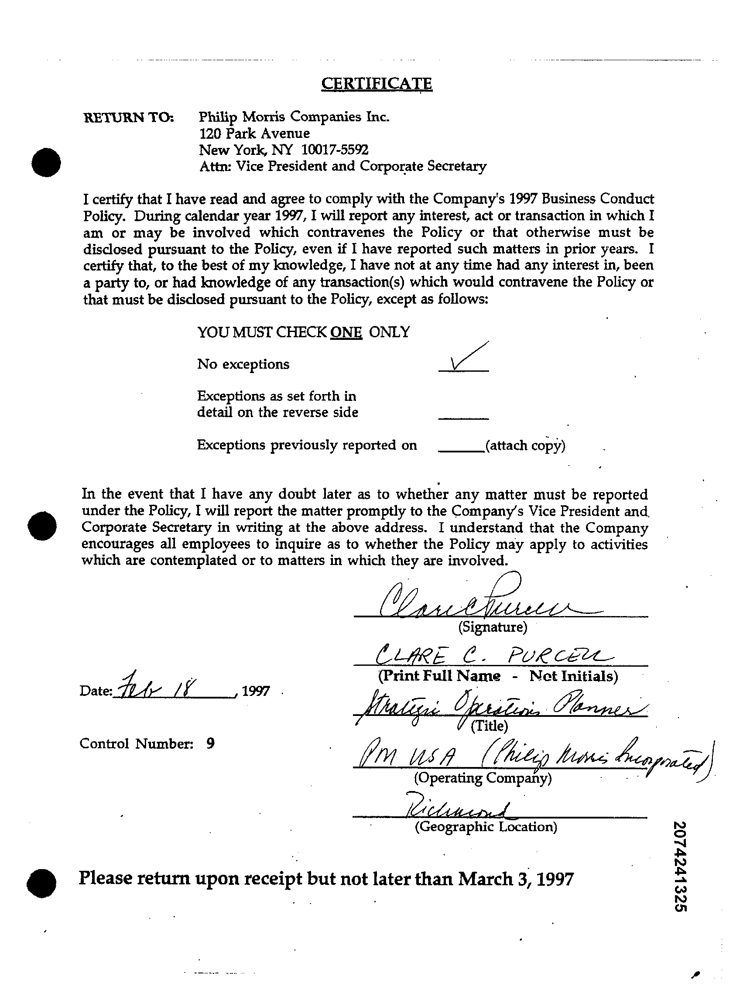 CERTIFICATE
RETURN TO: Philip Morris Companies Inc.
120 Park Avenue
New York, NY 10017-5592
Attn: Vice President and Corporate Secretary
I certify that I have read and agree to comply with the Company's 1997 Business Conduct
Policy. During calendar year 1997, I will report any interest, act or transaction in which I
am or may be involved which contravenes the Policy or that otherwise must be
disclosed pursuant to the Policy, even if I have reported such matters in prior years. I
certify that, to the best of my knowledge, I have not at any time had any interest in, been
a party to, or had knowledge of any transaction(s) which would contravene the Policy or
that must be disclosed pursuant to the Policy, except as follows:
YOU MUST CHECK ONE ONLY
No exceptions ✓
Exceptions as set forth in
detail on the reverse side
Exceptions previously reported on ______(attach copy)
In the event that I have any doubt later as to whether any matter must be reported
under the Policy, I will report the matter promptly to the Company's Vice President and
Corporate Secretary in writing at the above address. I understand that the Company
encourages all employees to inquire as to whether the Policy may apply to activities
which are contemplated or to matters in which they are involved.
Clare C Purcell
(Signature)
CLARE C. PURCELL
(Print Full Name - Not Initials)
Date: Feb 18, 1997
Strategic Operations Planner
(Title)
Control Number: 9
PM USA (Philip Morris Incorporated)
(Operating Company)
Richmond
(Geographic Location)
Please return upon receipt but not later than March 3, 1997
2074241325